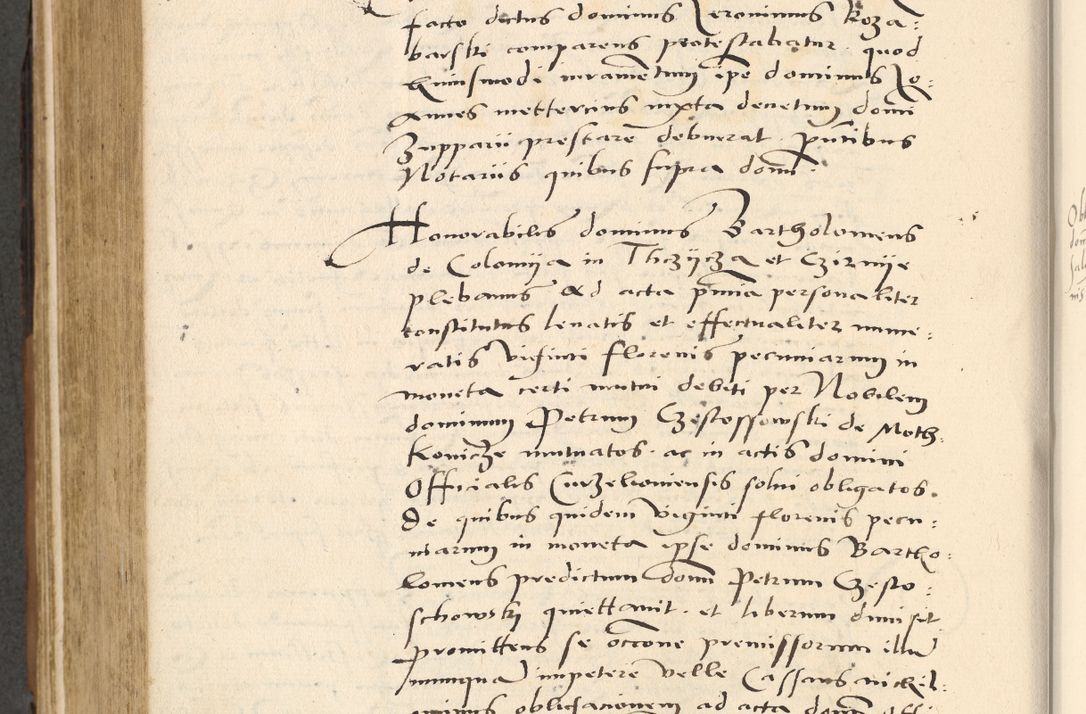 facto dictus dominus Jeronimus Roza:
barski comparens protestabatur quod
huiusmodi iuramentum ipse dominus Jo:
annes mettercius iuxta decretum domi
Zupparii prestare debuerat. pntibus
Notariis quibus supra domi.
Honorabilis dominus Bartholomeus
de Colomya in Thczycza et Czirnye
plebanus ad acta pntia personaliter
constitutus leuatis et effectualiter nume:
ratis viginti florenis pecuniarum in
moneta certi mutui debiti per Nobilem
dominum Petrum Czestossowski de Moth:
kowicze mutuatos. ac in actis domini
Officialis Curzelouiensis solui obligatos.
De quibus quidem viginti florenis pecu:
niarum in moneta ipse dominus Bartho:
lomeus predictum domi Petrum Czesto:
schowski quiettauit. et liberum dimisit
promittens se occone premissorum illum
nunquam impetere velle Cassans nichil:
ominus obligacionem ad acta domi offi: